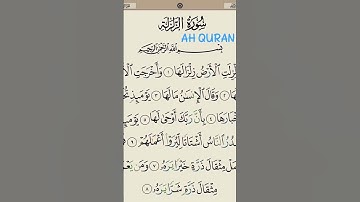 سُورَةُ الزَّلْزَلَةِ
AH QURAN
بِسْمِ اللَّهِ الرَّحْمَٰنِ الرَّحِيمِ
زِلَتِ الْأَرْضُ زِلْزَالَهَا ١ وَأَخْرَجَتِ الْأَ
هَا ٢ وَقَالَ الْإِنسَٰنُ مَا لَهَا ٣ يَوْمَئِذٍ تُحَ
خْبَارَهَا ٤ بِأَنَّ رَبَّكَ أَوْحَىٰ لَهَا ٥ يَوْمَئِ
دُرُ النَّاسُ أَشْتَاتًا لِّيُرَوْا۟ أَعْمَٰلَهُمْ ٦
مَلْ مِثْقَالَ ذَرَّةٍ خَيْرًا يَرَهُۥ ٧ وَمَن يَعْمَ
مِثْقَالَ ذَرَّةٍ شَرًّا يَرَهُۥ ٨